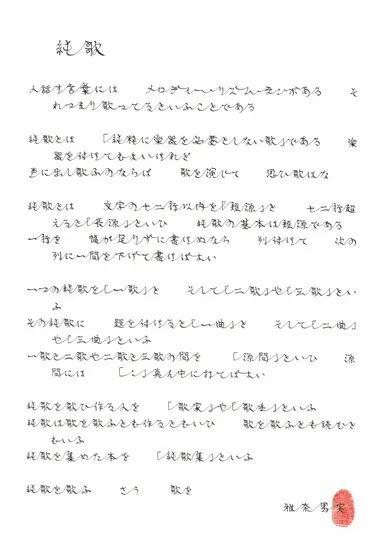 純歌
人話す言葉には　メロディー・リズム・テンポがある　そ
れつまり歌ってるといふことである
純歌とは　「純粋に楽器を必要としない歌」である　楽
器を付けてもよいけれど
声に出し歌ふのならば　歌を演じて　思ひ歌はな
純歌とは　文字の七二行以内を「短源」と　七二行超
えると「長源」といひ　純歌の基本は短源である
一行を　幅が足りずに書けぬなら　列付けて　次の
列に一間を下げて書けばよい
一つの純歌を「一歌」と　そして「二歌」や「三歌」とい
ふ
その純歌に　題を付けると「一曲」と　そして「二曲」
や「三曲」といふ
一歌と二歌や二歌と三歌の間を　「源間」といひ　源
間には　「：」真ん中に打てばよい
純歌を歌ひ作る人を　「歌実」や「歌主」といふ
純歌は歌を歌ふとも作るともいひ　歌を歌ふとも読むと
もいふ
純歌を集めた本を　「純歌集」といふ
純歌を歌ふ　さう　歌を
雅奈男実